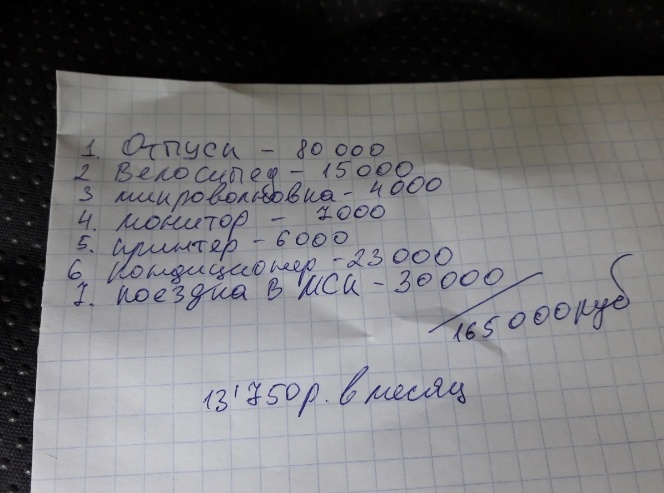 1. Отпуск – 80 000
2 Велосипед – 15 000
3 микроволновка – 4000
4. монитор – 7000
5. принтер – 6000
6 кондиционер – 23 000
7. поездка в МСК – 30 000
165 000 руб
13'750р. в месяц